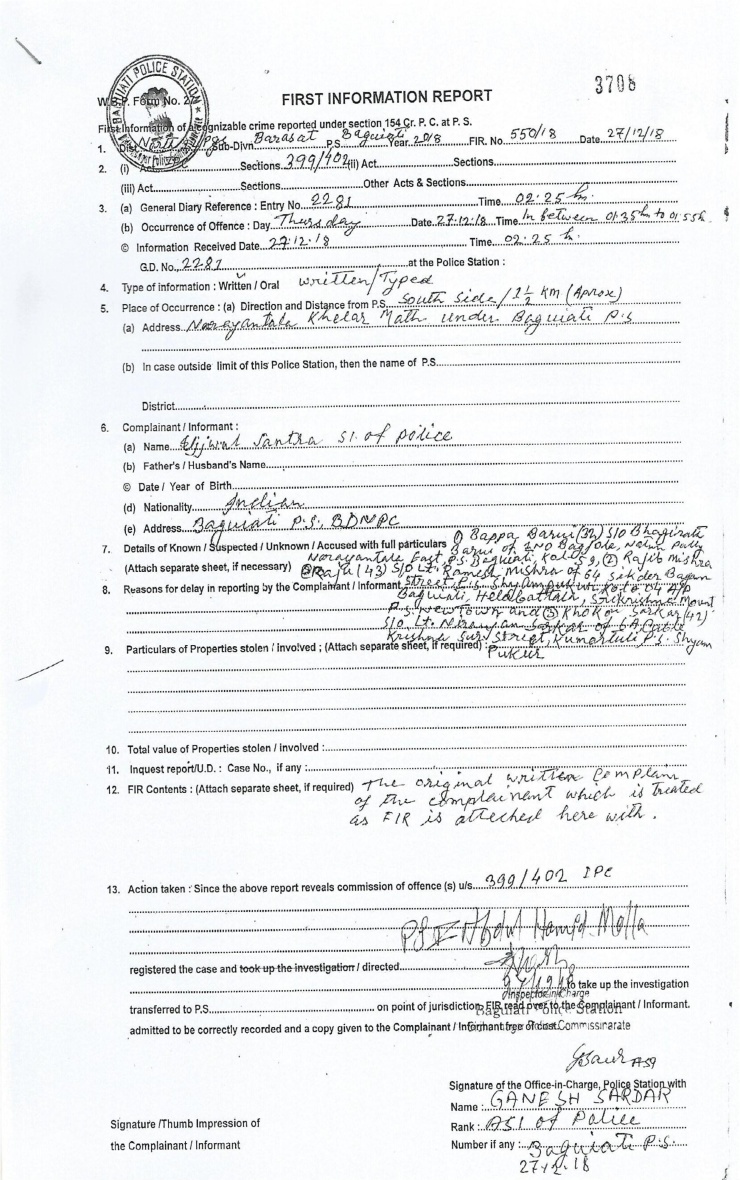 3708
BAGUIATI POLICE STATION
W.B.P. Form No. 27
FIRST INFORMATION REPORT
First Information of a cognizable crime reported under section 154 Cr. P. C. at P. S.
1. Dist. North Pgs Sub-Divn. Barasat P.S. Baguiati Year 2018 FIR. No. 550/18 Date 27/12/18
2. (i) Act Sections 399/402 (ii) Act Sections
(iii) Act Sections Other Acts & Sections
3. (a) General Diary Reference : Entry No. 2281 Time 02.25 hr.
(b) Occurrence of Offence : Day Thursday Date 27.12.18 Time In between 01.35 h to 01.55 h.
© Information Received Date 27.12.18 Time 02.25 h.
G.D. No. 2281 at the Police Station :
4. Type of information : Written / Oral written/Typed
5. Place of Occurrence : (a) Direction and Distance from P.S. South side/1½ KM (Aprox)
(a) Address Narayantala Khelar Math under Baguiati P.S
(b) In case outside limit of this Police Station, then the name of P.S.
District
6. Complainant / Informant :
(a) Name Ujjwal Santra SI. of police
(b) Father's / Husband's Name
© Date / Year of Birth
(d) Nationality Indian
(e) Address Baguiati P.S., BDNPC
7. Details of Known / Suspected / Unknown / Accused with full particulars ① Bappa Barui (32) S/O Bhagirath
Barui of 2NO Bagjola, Natun Pally
(Attach separate sheet, if necessary) Narayantala East P.S. Baguiati Kol-59, ② Rajib Mishra
@ Raju (43) S/O Lt. Ramesh Mishra of 64 Sikder Bagan
8. Reasons for delay in reporting by the Complainant / Informant Street P.S. Shyampukur Kol-04 A/P
Baguiati, Helabattala, Srikrishna Mount
P.S. New Town and ③ Khokon Sarkar (42)
S/O Lt. Niranjan Sarkar of 6A
Krishna Sur Street, Kumartuli P.S. Shyam
9. Particulars of Properties stolen / involved ; (Attach separate sheet, if required) : Pukur
10. Total value of Properties stolen / involved :
11. Inquest report/U.D. : Case No., if any :
12. FIR Contents : (Attach separate sheet, if required) The original written Complain
of the complainent which is treated
as FIR is atteched here with.
13. Action taken : Since the above report reveals commission of offence (s) u/s. 399/402 IPC
PSI Abdul Hamid Molla
registered the case and took up the investigation / directed
to take up the investigation
Inspector-in-Charge
transferred to P.S. on point of jurisdiction FIR read over to the Complainant / Informant.
Baguiati Police Station
admitted to be correctly recorded and a copy given to the Complainant / Informant free of cost.
Commissinarate
ASI
Signature of the Office-in-Charge, Police Station with
Name : GANESH SARDAR
Signature /Thumb Impression of
Rank : ASI of Police
the Complainant / Informant
Number if any : Baguiati P.S.
27.12.18